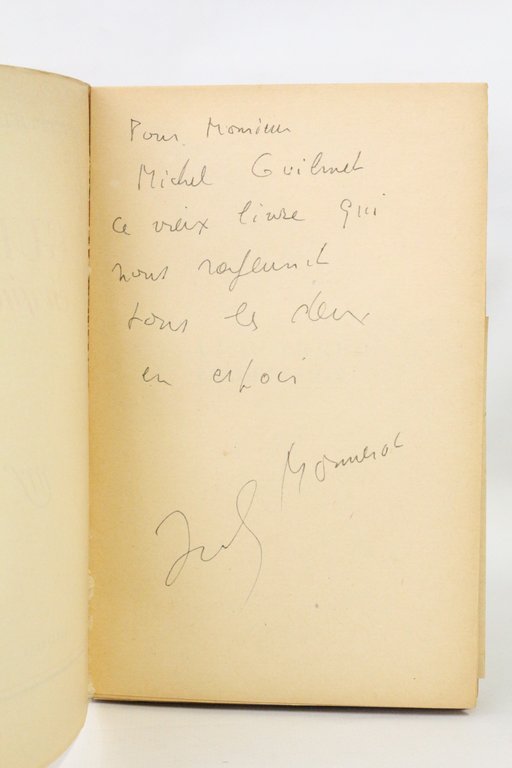 Pour Monsieur
Michel Guilmet
ce vieux livre qui
nous rajeunit
tous les deux
en espoir
Jules Monnerot